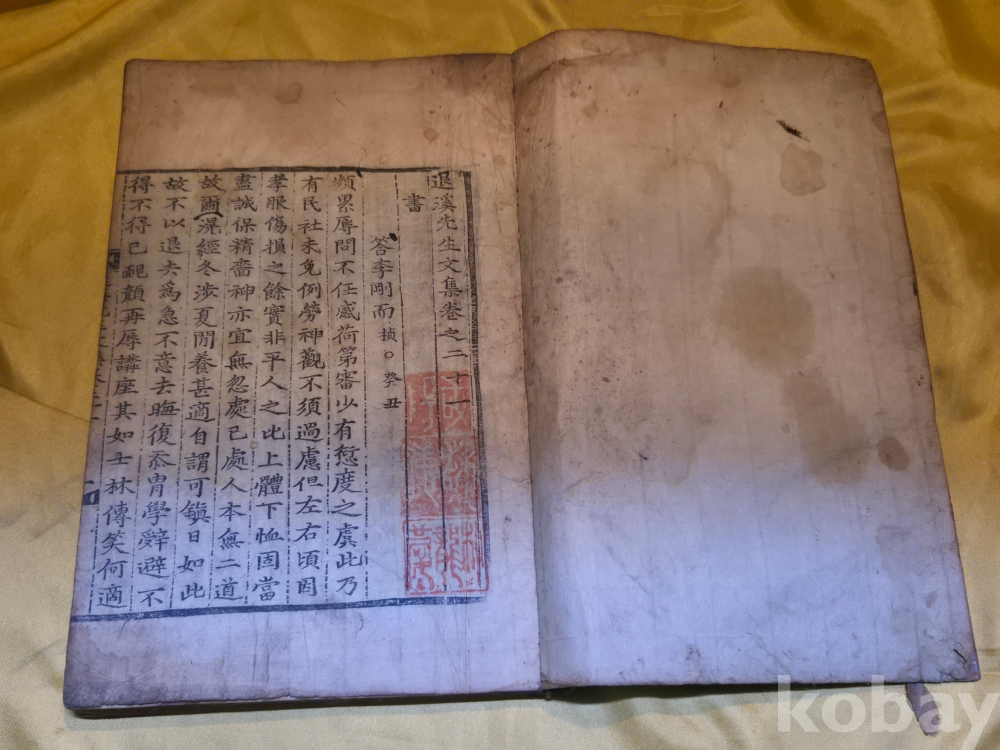 退溪先生文集卷之二十一
書
答李剛而 楨○癸丑
頻累辱問不任感荷第審少有愆度之虞此乃
有民社未免例勞神觀不須過慮但左右頃因
孝服傷損之餘實非平人之比上體下恤固當
盡誠保精嗇神亦宜無忽處己處人本無二道
故爾滉經冬涉夏閒養甚適自謂可鎭日如此
故不以退去爲急不意去晦復忝胄學辭避不
得不得已靦顔再辱講座其如士林傳笑何適
kobay